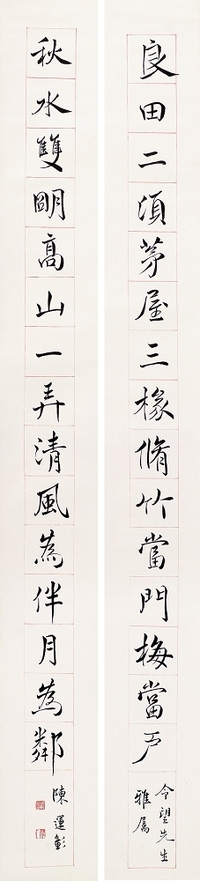 良田二頃茅屋三椽脩竹當門梅當户
今望先生
雅屬
秋水雙明高山一弄清風為伴月為鄰
陳運彰